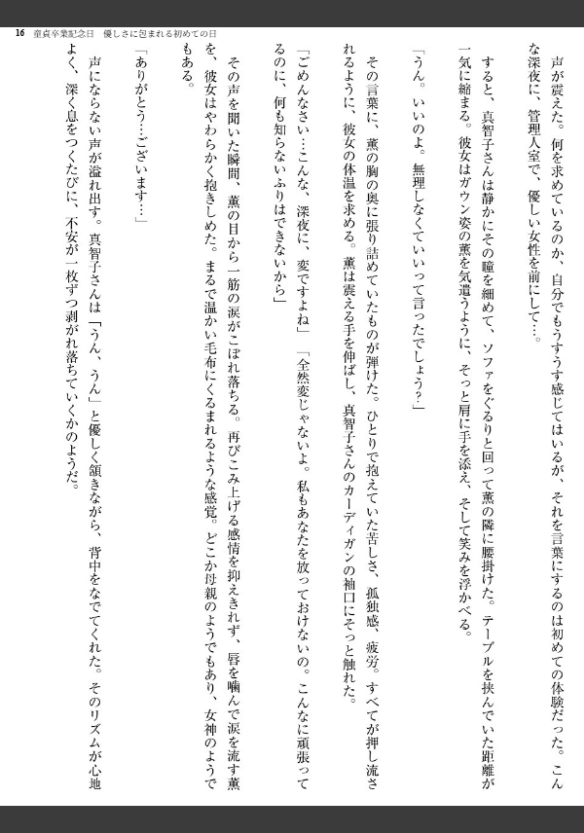 16 童貞卒業記念日　優しさに包まれる初めての日
　声が震えた。何を求めているのか、自分でもうすうす感じてはいるが、それを言葉にするのは初めての体験だった。こん
な深夜に、管理人室で、優しい女性を前にして…。
　すると、真智子さんは静かにその瞳を細めて、ソファをぐるりと回って薫の隣に腰掛けた。テーブルを挟んでいた距離が
一気に縮まる。彼女はガウン姿の薫を気遣うように、そっと肩に手を添え、そして笑みを浮かべる。
「うん。いいのよ。無理しなくていいって言ったでしょう？」
　その言葉に、薫の胸の奥に張り詰めていたものが弾けた。ひとりで抱えていた苦しさ、孤独感、疲労。すべてが押し流さ
れるように、彼女の体温を求める。薫は震える手を伸ばし、真智子さんのカーディガンの袖口にそっと触れた。
「ごめんなさい…こんな、深夜に、変ですよね」　「全然変じゃないよ。私もあなたを放っておけないの。こんなに頑張って
るのに、何も知らないふりはできないから」
　その声を聞いた瞬間、薫の目から一筋の涙がこぼれ落ちる。再びこみ上げる感情を抑えきれず、唇を噛んで涙を流す薫
を、彼女はやわらかく抱きしめた。まるで温かい毛布にくるまれるような感覚。どこか母親のようでもあり、女神のようで
もある。
「ありがとう…ございます…」
　声にならない声が溢れ出す。真智子さんは「うん、うん」と優しく頷きながら、背中をなでてくれた。そのリズムが心地
よく、深く息をつくたびに、不安が一枚ずつ剥がれ落ちていくかのようだ。